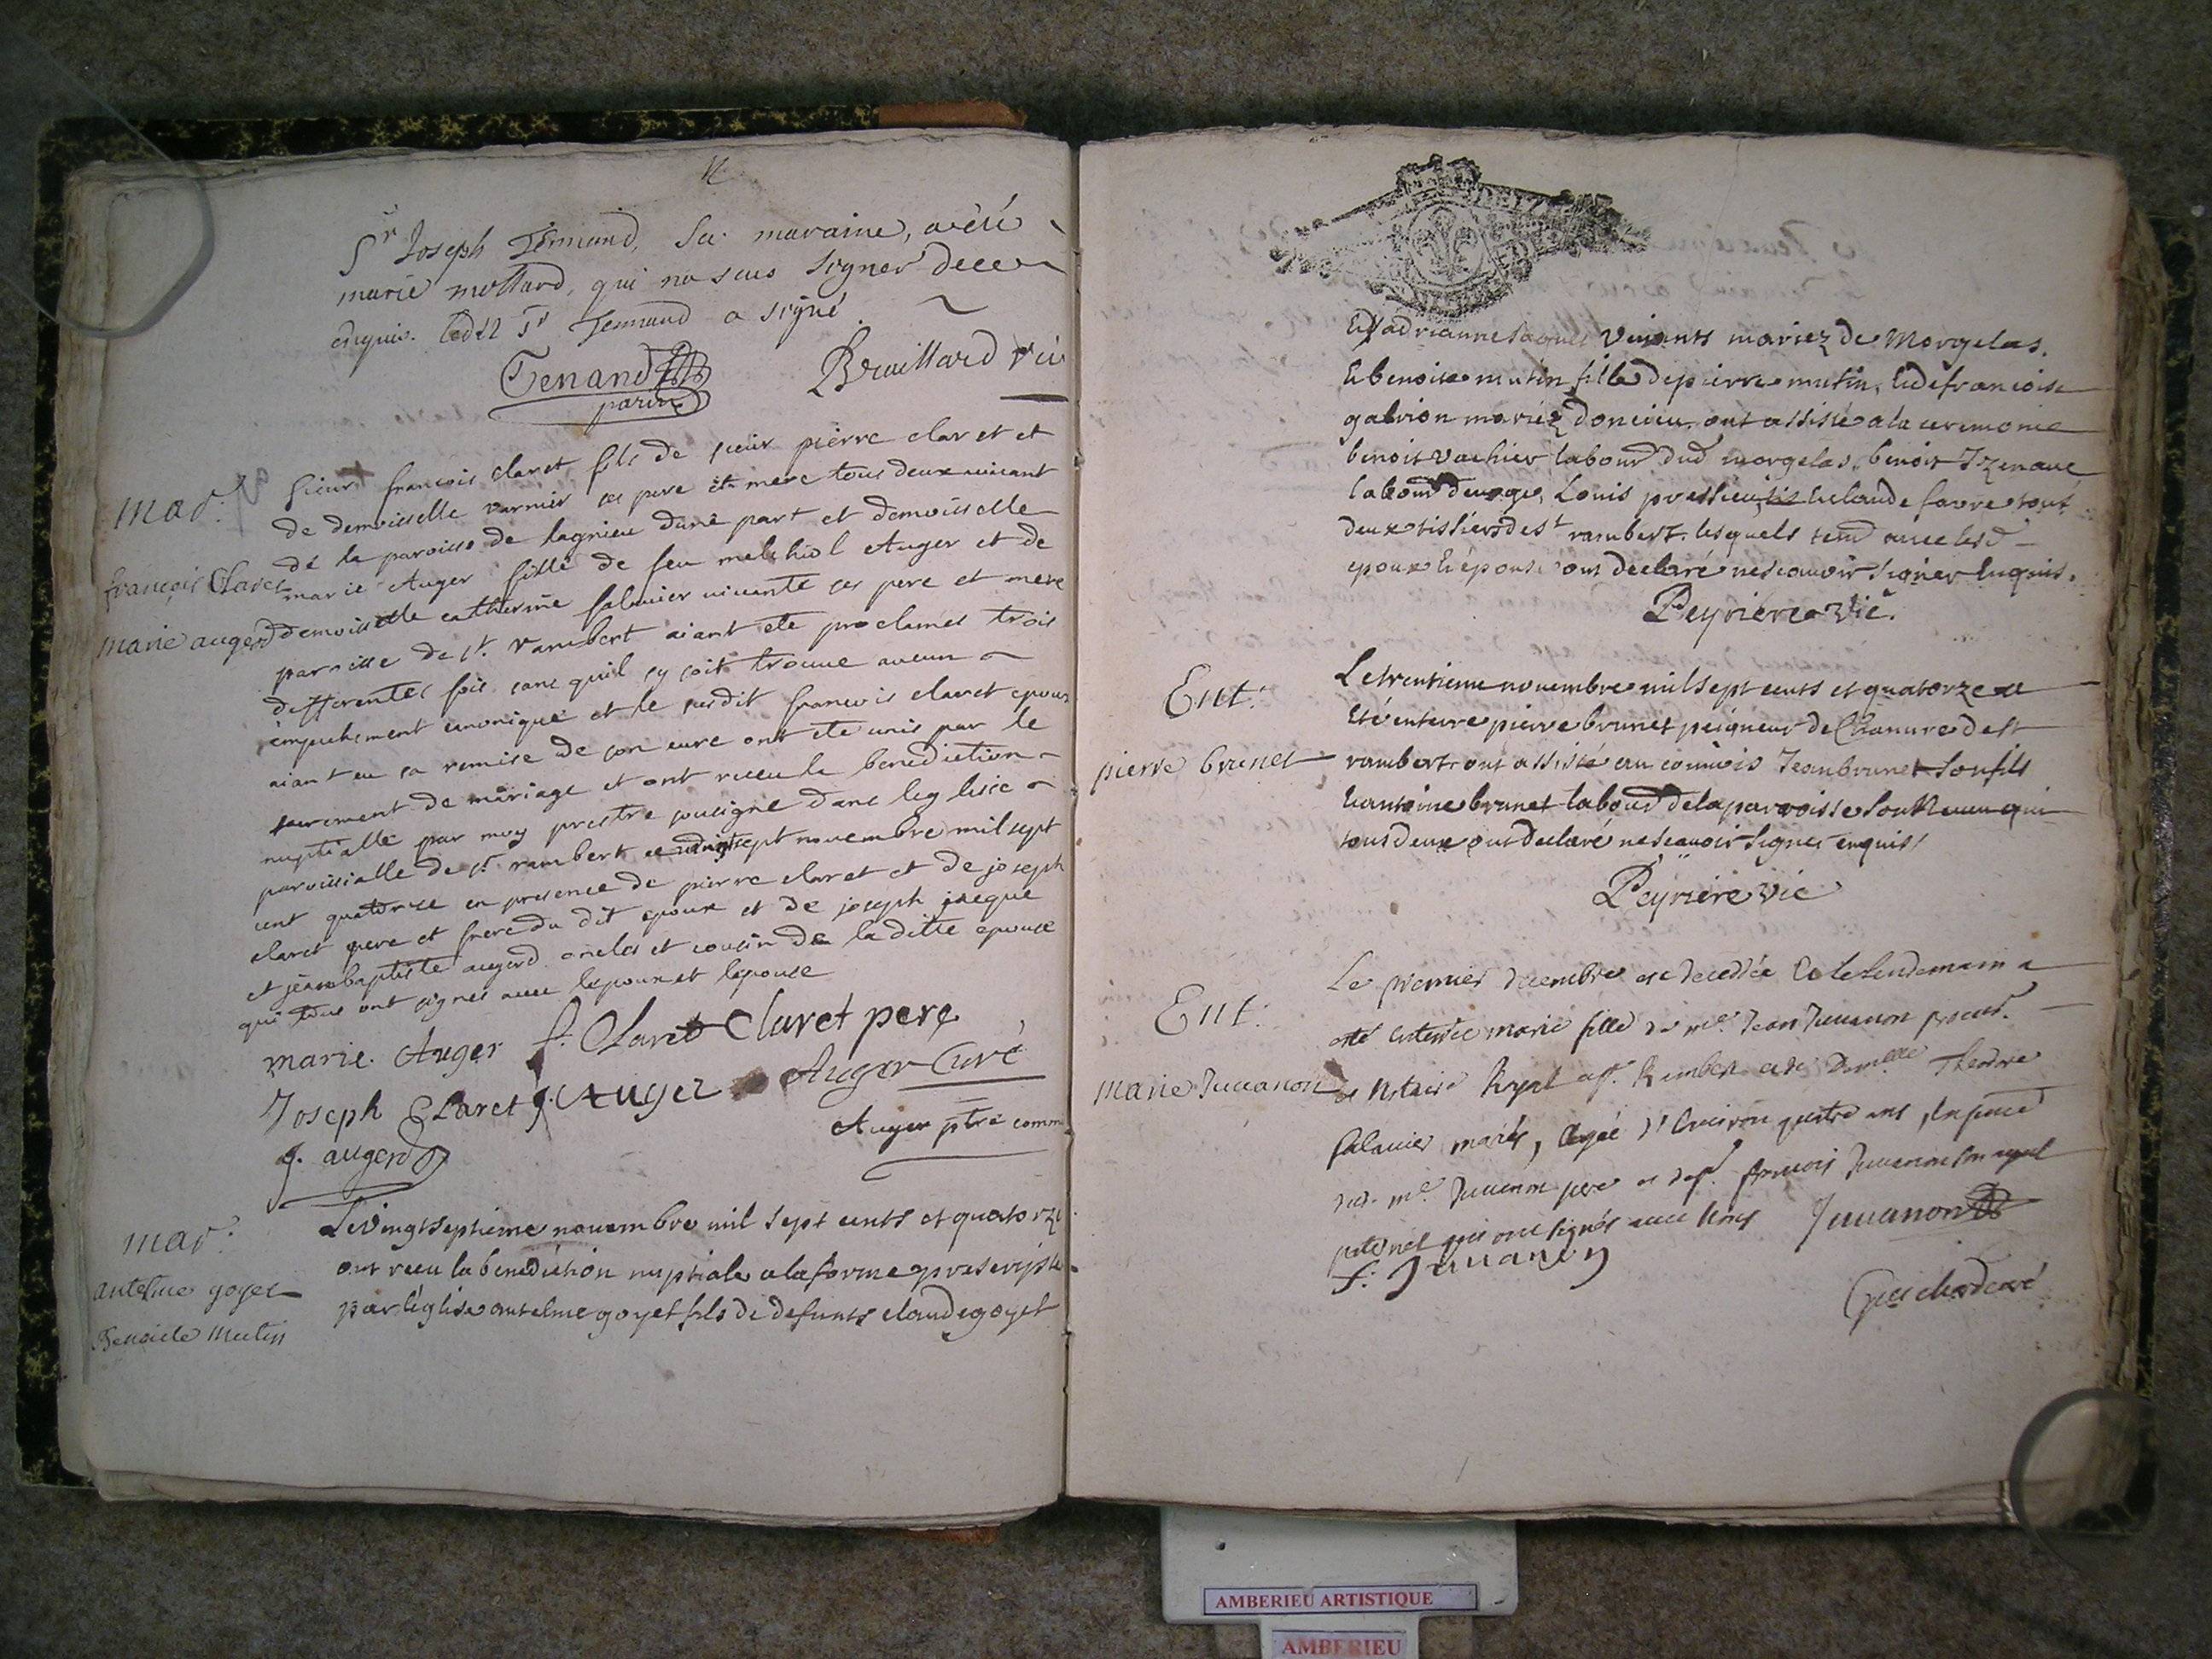 Sr Joseph Tennand, sa maraine, a été
marie mottard, qui na sceu signer de ce
enquis. ledit Sr Tennand a signé
Tenand
parin
Bruillard vic
mar.
françois Claret
marie augerd
sieur francois claret fils de sieur pierre claret et
de demoiselle varnier ses pere et mere tous deux vivant
de la paroisse de lagnieu dune part et demoiselle
marie Auger fille de feu melchiol Auger et de
demoiselle catherine salavier vivante ses pere et mere
parroisse de st. rambert aiant ete proclamés trois
differentes fois sans quil sy soit trouvé aucun
empechement canonique et le susdit francois claret epoux
aiant eu sa remise de son curé ont ete unis par le
sacrement de mariage et ont receu la benediction
nuptialle par moy prestre sousigne dans leglisse
paroissialle de st. rambert ce vingtsept novembre mil sept
cent quatorze en presence de pierre claret et de joseph
claret pere et frere du dit epoux et de joseph
et jean baptiste augerd oncles et cousin de la ditte epouse
qui tous ont signes avec lepoux et lepouse
marie. Auger f. Claret Claret pere
Joseph Claret J. Auger Auger Curé
J. augerd
Auger ptre comm
mar.
antelme goyet
Benoite Mutin
Le vingtseptieme novembre mil sept cents et quatorze
ont receu la benediction nuptiale a la forme prescripte
par léglise antelme goyet fils de defunts claude goyet
Et adrianne vivants mariez de Morgelas.
Et benoite mutin fille de pierre mutin, Et de francoise
galvion mariez doncieu, ont assisté a la ceremonie
benoit vachier labour dud morgelas, benoit
labour Louis claude favre tout
deux tissiers de st rambert. lesquels temd avec lesd
epoux Et épouse ont declaré ne scavoir signer Enquis.
Peyriere Vic.
Ent.
pierre brunet
Le trentieme novembre mil sept cents et quatorze a
Eté enterre pierre brunet peigneur de Chanvre de st
rambert ont assisté au convois Jean brunet son fils
Et antoine brunet labour de la parroisse son neveu qui
tous deux ont declaré ne scavoir signer enquis
Peyriere vic
Ent.
Marie Juvanon
Le premier decembre est decedée Et le lendemain a
esté enterrée marie fille de me Jean Juvanon procur.
et Notaire Royal a st. Rambert et de Demlle
Salavier mariés, Agée d'Environ quatre ans, En presce
dud. me. Juvanon pere et de sr. francois Juvanon son ayeul
paternel qui ont signés avec Nous Juvanon
f. Juvanon